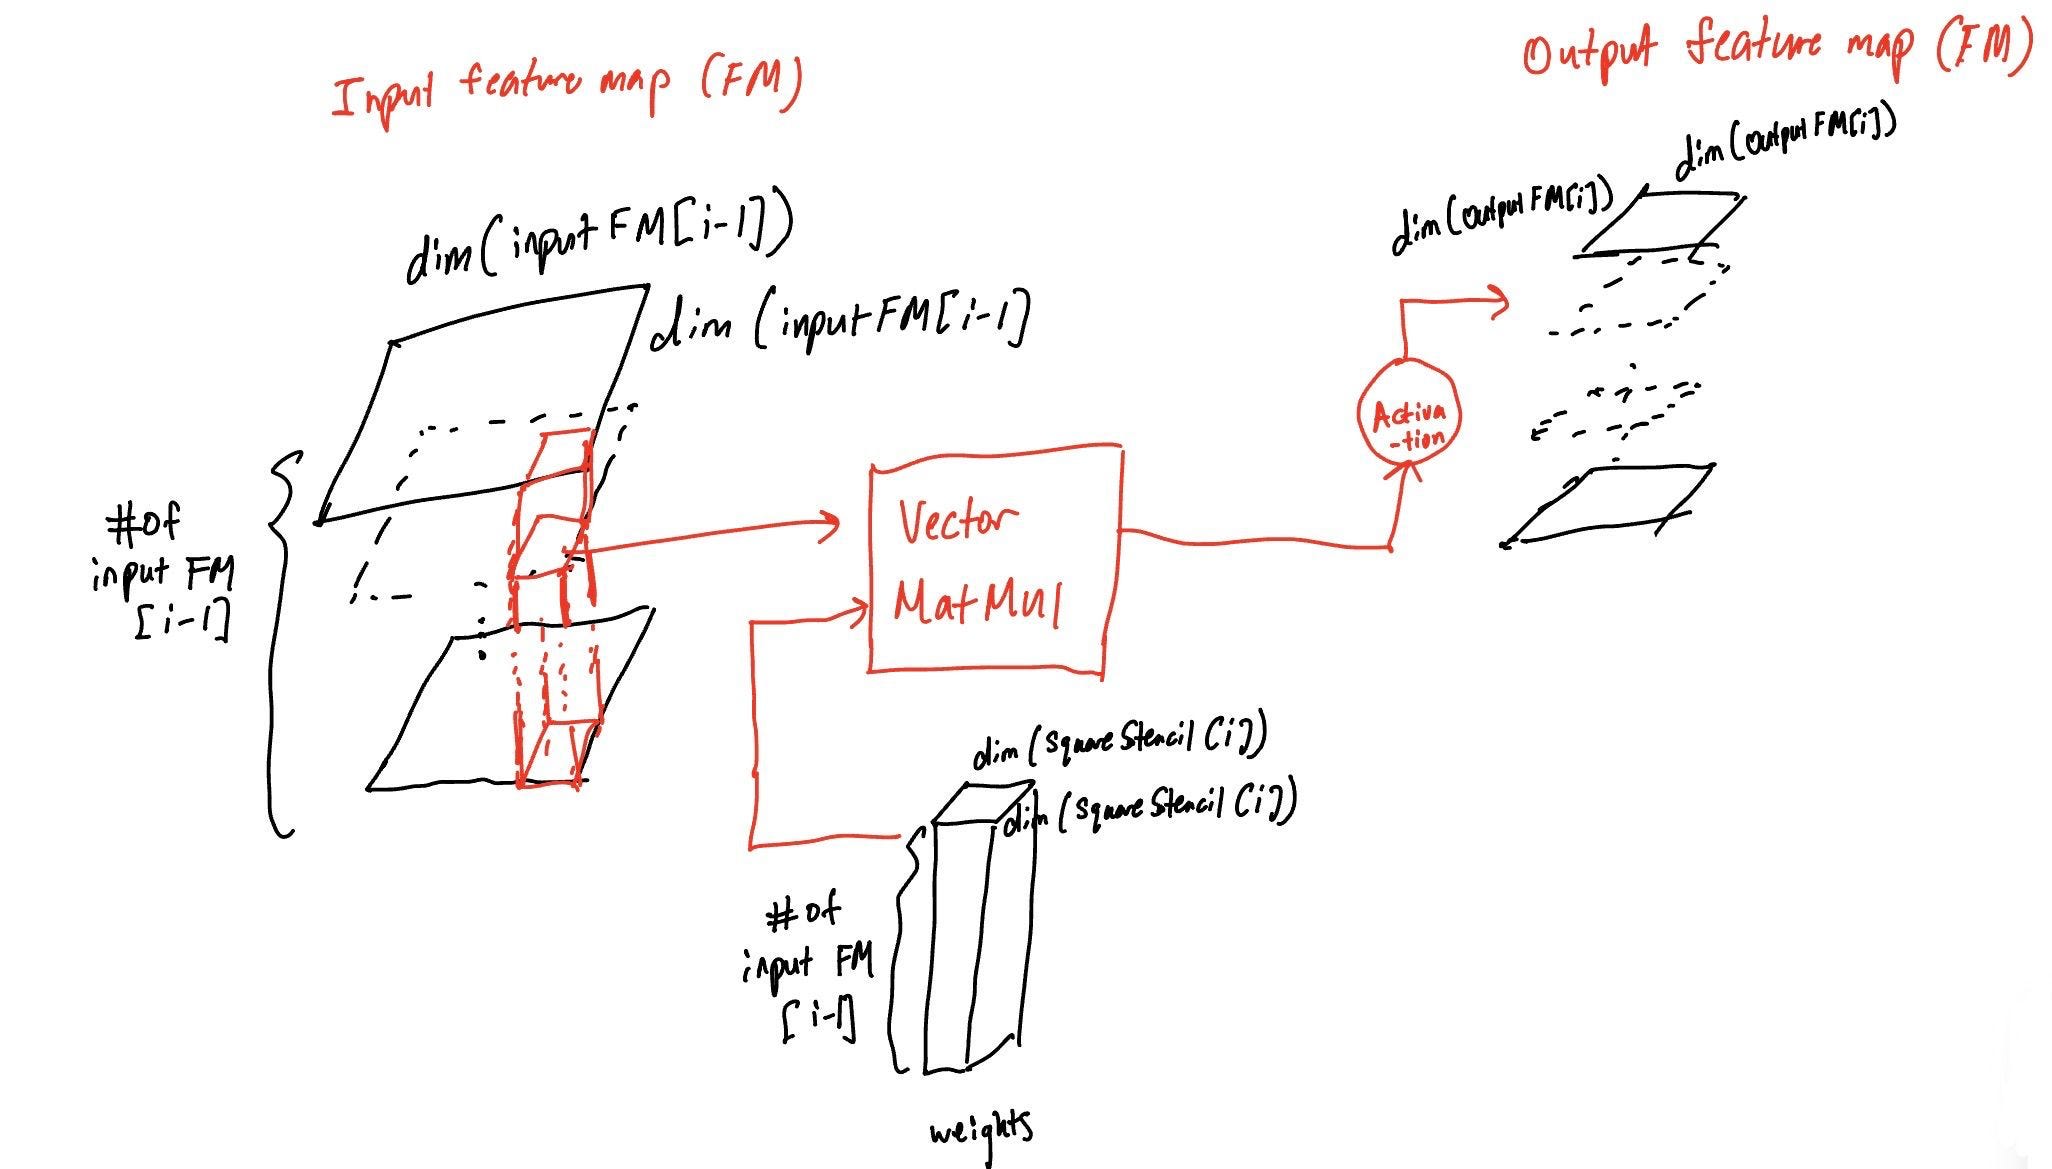 Input feature map (FM)
Output feature map (FM)
dim(outputFM[i])
dim(outputFM[i])
dim(inputFM[i-1])
dim(inputFM[i-1]
# of
input FM
[i-1]
Vector
MatMul
Activa
-tion
dim(squareStencil[i])
dim(squareStencil[i])
# of
input FM
[i-1]
weights